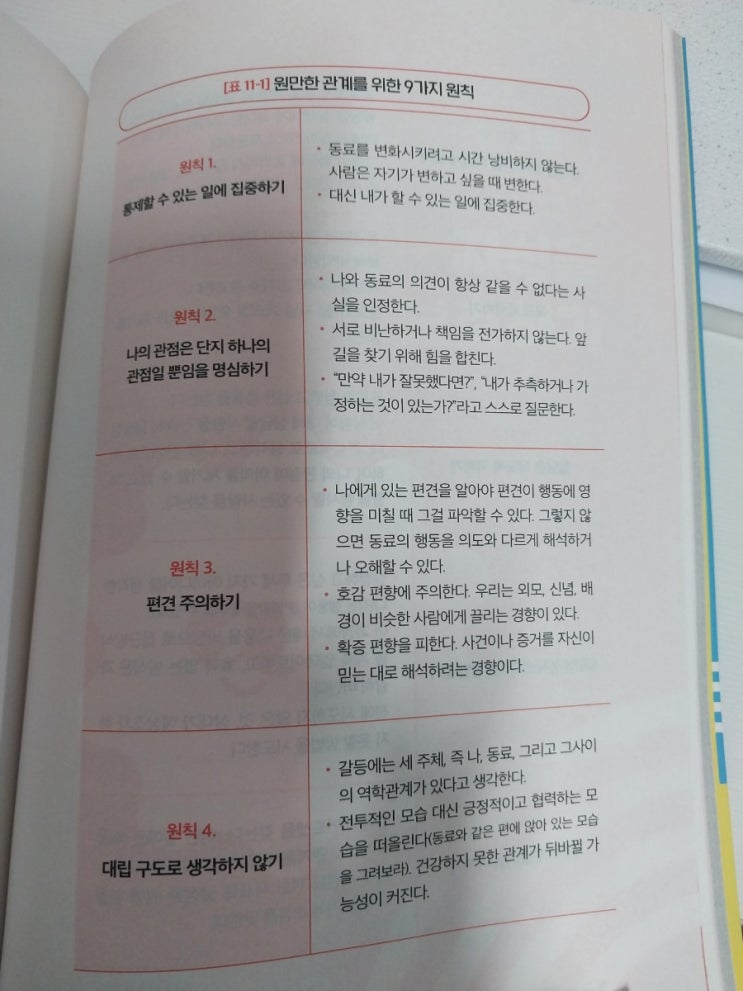 [표 11-1] 원만한 관계를 위한 9가지 원칙
원칙 1.
통제할 수 있는 일에 집중하기
• 동료를 변화시키려고 시간 낭비하지 않는다.
사람은 자기가 변하고 싶을 때 변한다.
• 대신 내가 할 수 있는 일에 집중한다.
원칙 2.
나의 관점은 단지 하나의
관점일 뿐임을 명심하기
• 나와 동료의 의견이 항상 같을 수 없다는 사
실을 인정한다.
• 서로 비난하거나 책임을 전가하지 않는다. 앞
길을 찾기 위해 힘을 합친다.
• “만약 내가 잘못했다면?”, “내가 추측하거나 가
정하는 것이 있는가?”라고 스스로 질문한다.
원칙 3.
편견 주의하기
• 나에게 있는 편견을 알아야 편견이 행동에 영
향을 미칠 때 그걸 파악할 수 있다. 그렇지 않
으면 동료의 행동을 의도와 다르게 해석하거
나 오해할 수 있다.
• 호감 편향에 주의한다. 우리는 외모, 신념, 배
경이 비슷한 사람에게 끌리는 경향이 있다.
• 확증 편향을 피한다. 사건이나 증거를 자신이
믿는 대로 해석하려는 경향이다.
원칙 4.
대립 구도로 생각하지 않기
• 갈등에는 세 주체, 즉 나, 동료, 그리고 그사이
의 역학관계가 있다고 생각한다.
• 전투적인 모습 대신 긍정적이고 협력하는 모
습을 떠올린다(동료와 같은 편에 앉아 있는 모습
을 그려보라). 건강하지 못한 관계가 뒤바뀔 가
능성이 커진다.